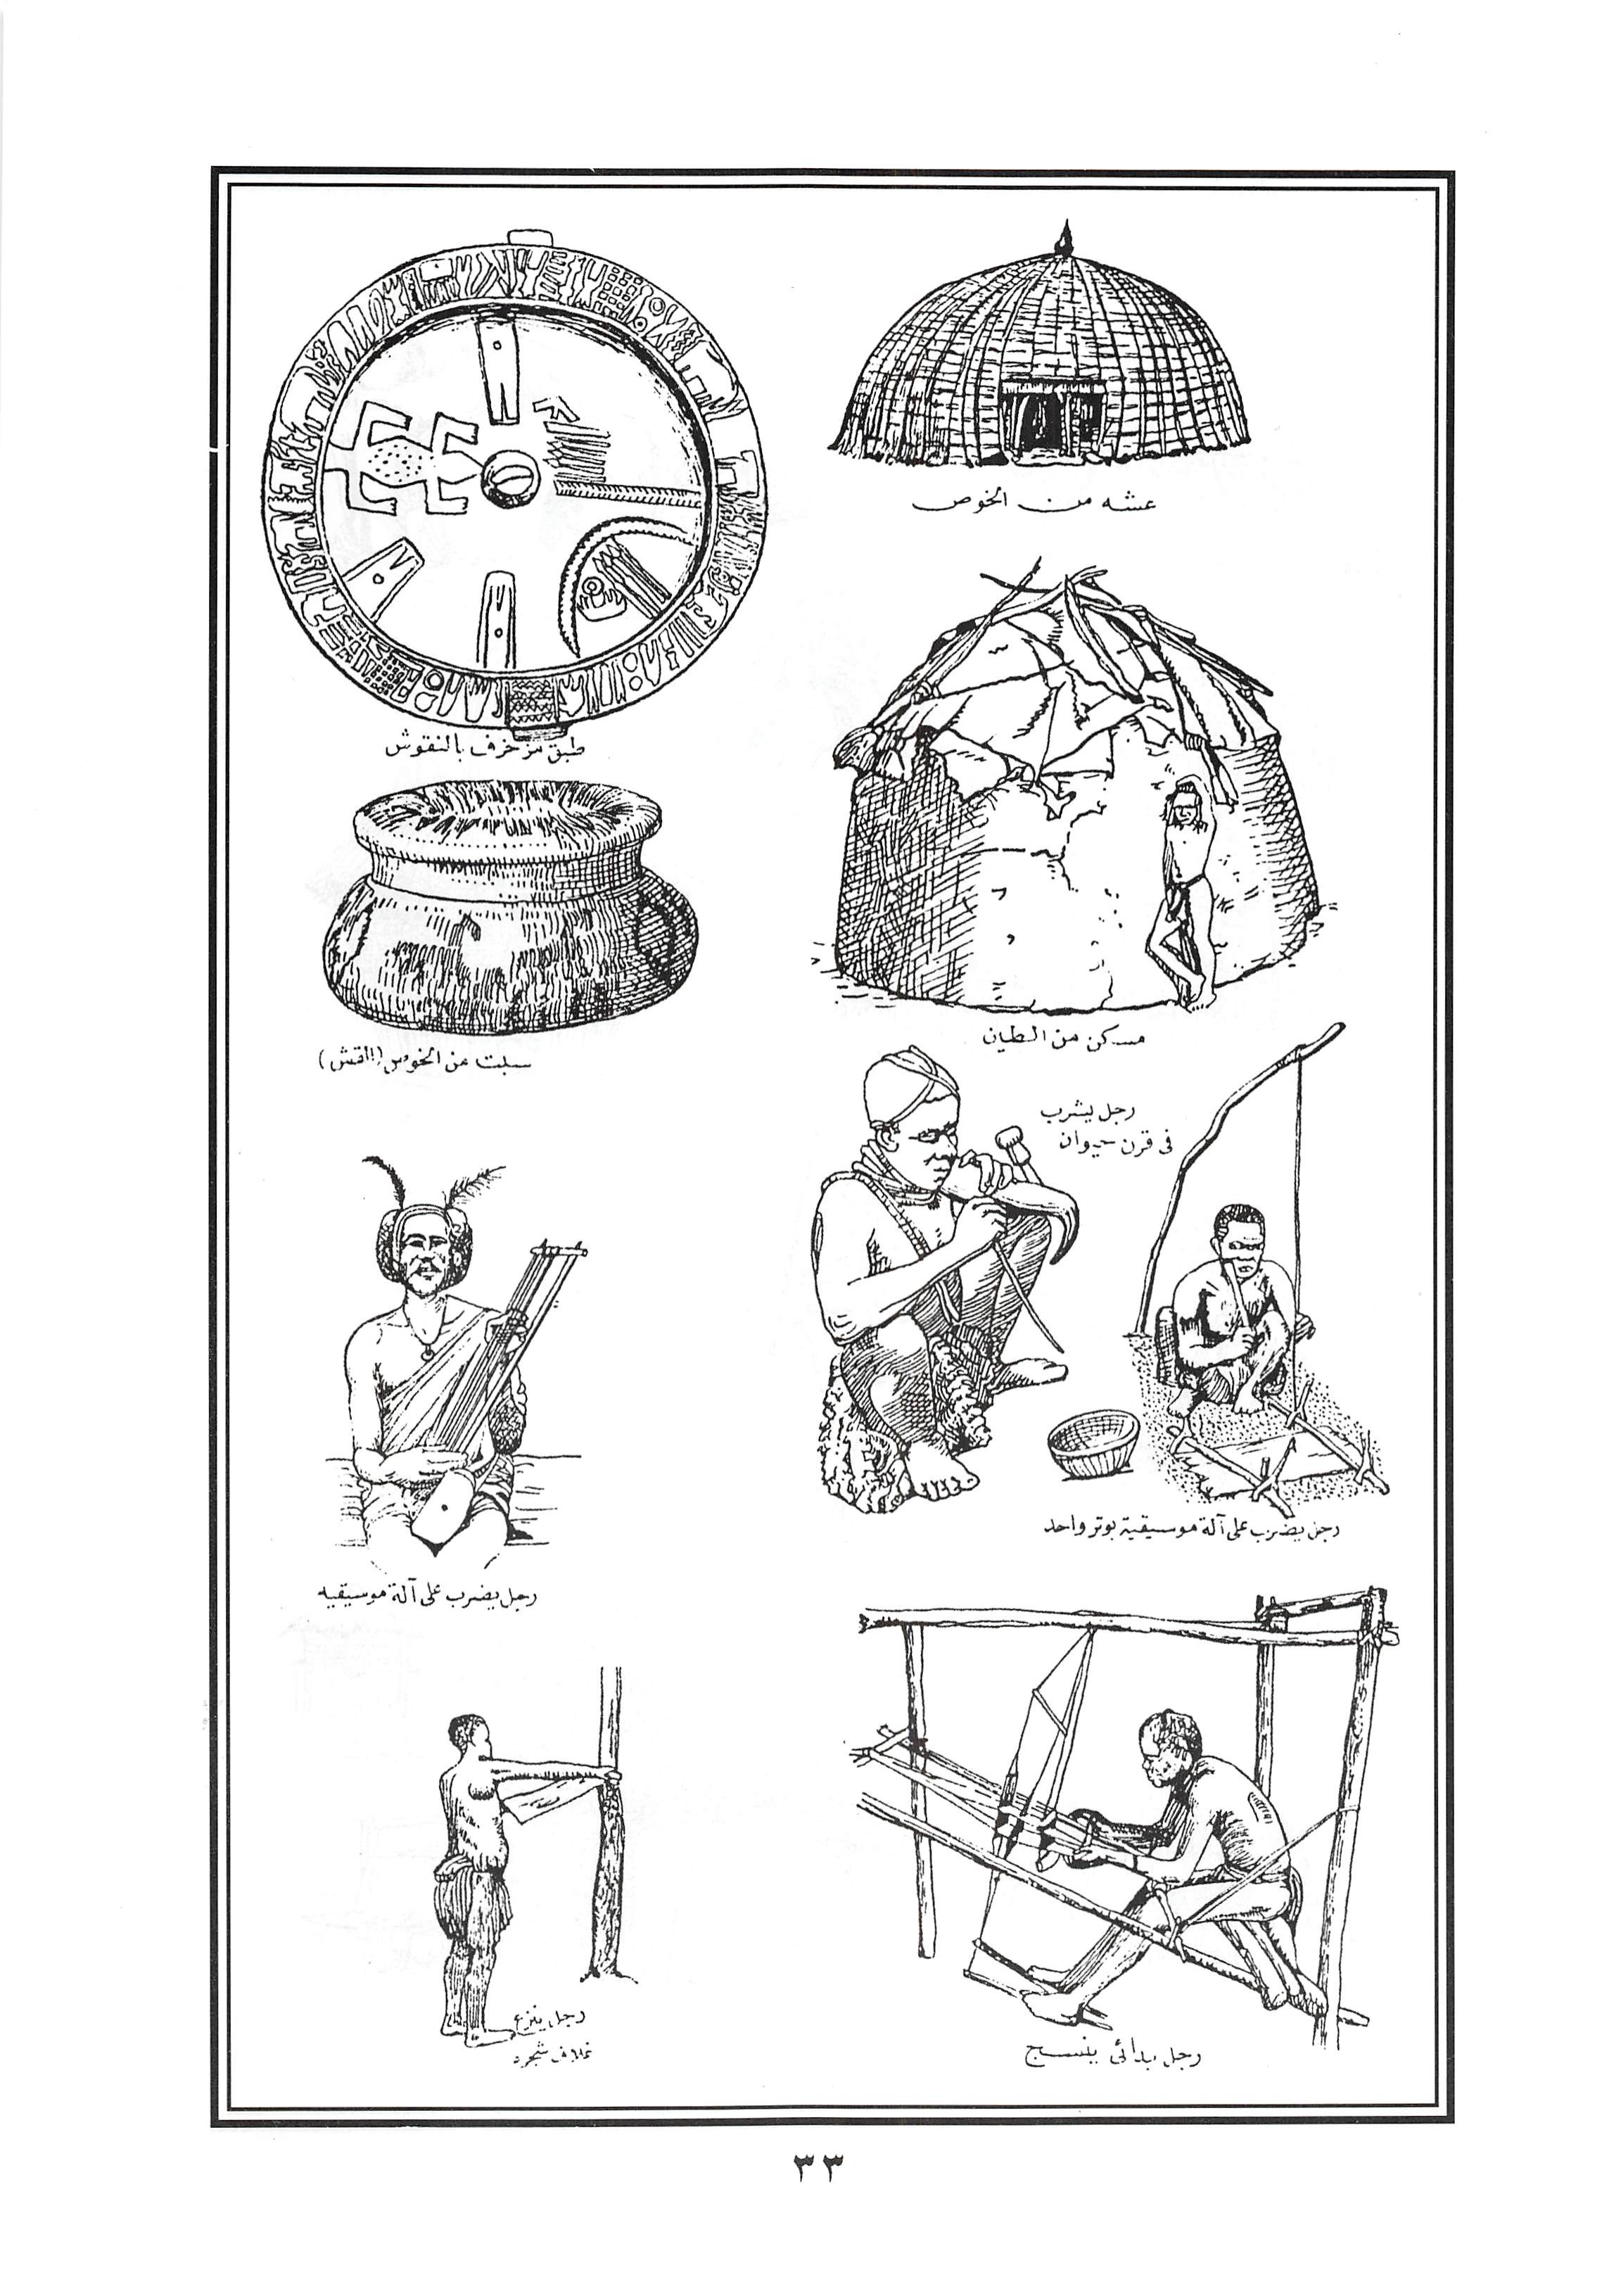 عشه من الخوص
طبق مزخرف بالنقوش
مسكن من الطين
سبت من الخوص (القش)
رجل يشرب
فى قرن حيوان
رجل يضرب على آلة موسيقية بوتر واحد
رجل يضرب على آلة موسيقيه
رجل بدائى ينسج
رجل ينزع
غلاف شجره
٣٣